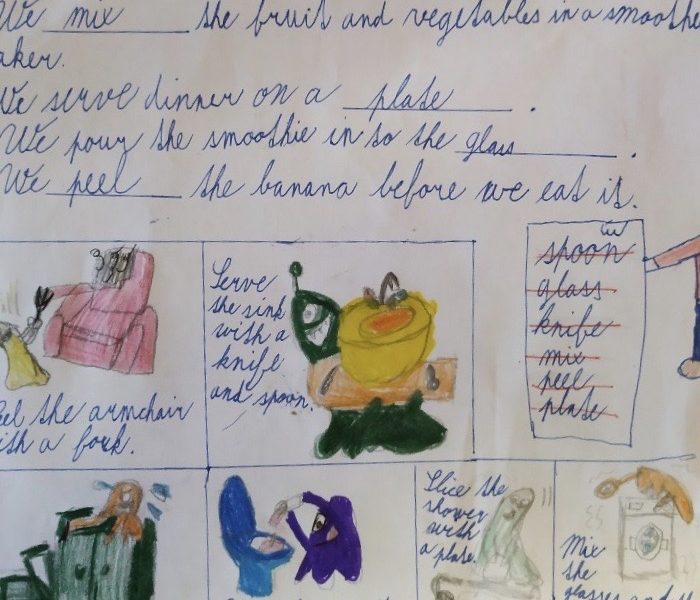 We mix the fruit and vegetables in a smoothe
aker.
We serve dinner on a plate.
We pour the smoothie in to the glass.
We peel the banana before we eat it.
spoon
glass
knife
mix
peel
plate
Serve
the sink
with a
knife
and spoon.
eel the armchair
ith a fork.
Slice the
shower
with
a plate.
Mix
the
glasses and the